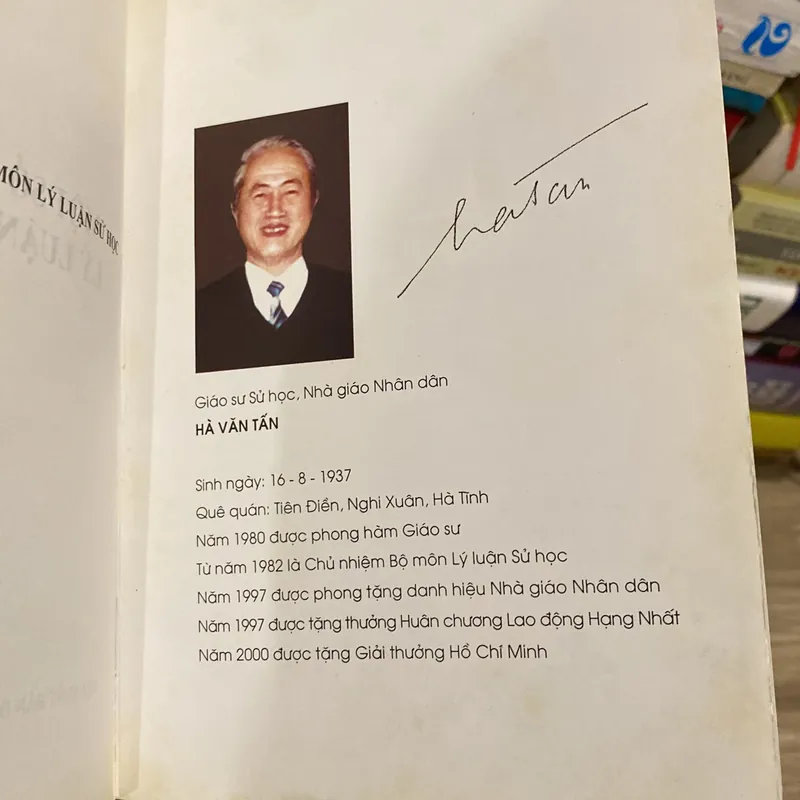 MÔN LÝ LUẬN SỬ HỌC
hatan
Giáo sư Sử học, Nhà giáo Nhân dân
HÀ VĂN TẤN
Sinh ngày: 16 - 8 - 1937
Quê quán: Tiên Điền, Nghi Xuân, Hà Tĩnh
Năm 1980 được phong hàm Giáo sư
Từ năm 1982 là Chủ nhiệm Bộ môn Lý luận Sử học
Năm 1997 được phong tặng danh hiệu Nhà giáo Nhân dân
Năm 1997 được tặng thưởng Huân chương Lao động Hạng Nhất
Năm 2000 được tặng Giải thưởng Hồ Chí Minh